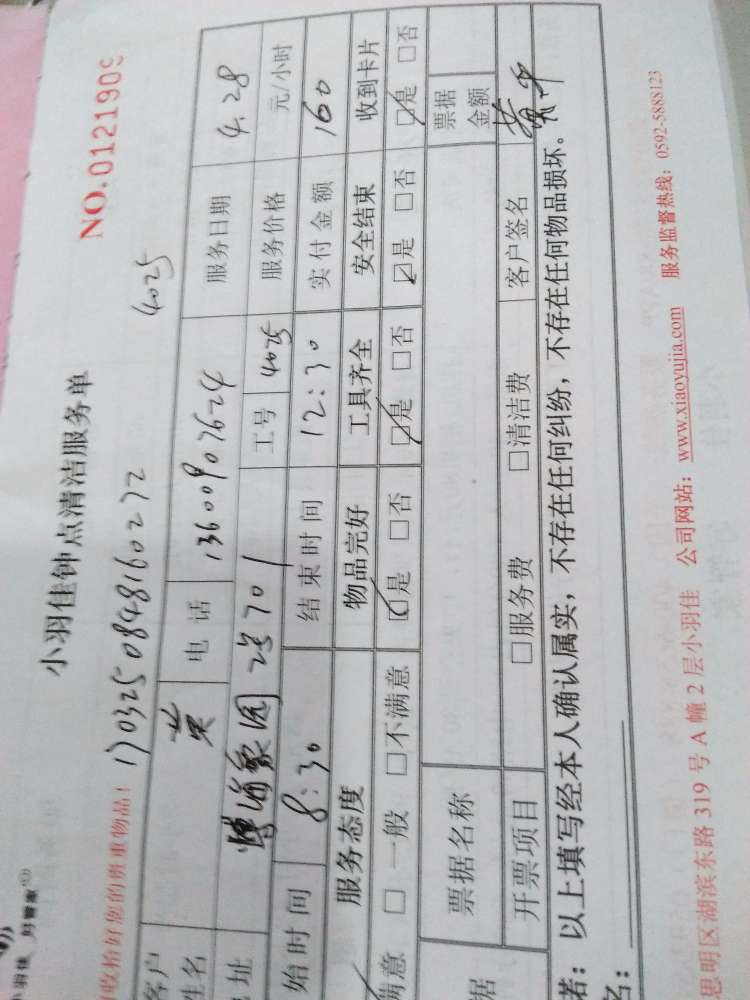 小羽佳 好管家
小羽佳钟点清洁服务单
NO.0121909
收拾好您的贵重物品！ 1703250848160272 4025
客户姓名 黄 电话 13600907624 服务日期 4.28
址 博海豪园 701 工号 4025 服务价格 元/小时
始时间 8:30 结束时间 12:30 实付金额 160
服务态度 物品完好 工具齐全 安全结束 收到卡片
满意 □一般 □不满意 ☑是 □否 ☑是 □否 ☑是 □否 ☑是 □否
据 票据名称 票据金额
开票项目 □服务费 □清洁费 客户签名 黄平
诺：以上填写经本人确认属实，不存在任何纠纷，不存在任何物品损坏。
名：
思明区湖滨东路 319 号 A 幢 2 层小羽佳 公司网站：www.xiaoyujia.com 服务监督热线：0592-5888123